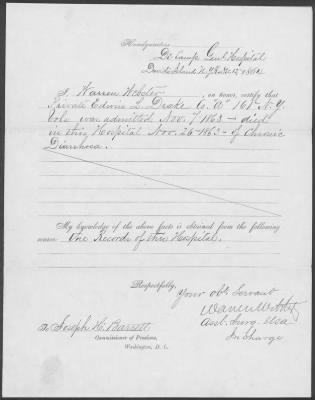 Headquarters
De Camp Genl Hospital
Davids Island N.Y.
I, Warren Webster, on honor, certify that
Private Edwin L. Drake Co. "C" 16" N.Y.
Vols was admitted Nov. 7" 1863 — died
in this Hospital Nov. 26-1863 — of Chronic
Diarrhoea.
My knowledge of the above facts is obtained from the following
source: The Records of this Hospital.
Respectfully,
Your obt. Servant
Warren Webster
Asst. Surg. USA
In Charge
To Joseph H. Barrett
Commissioner of Pensions,
Washington, D. C.